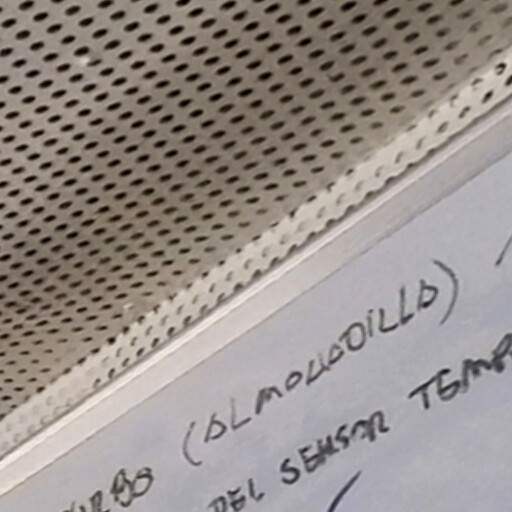 (ALMOHADILLA)
DEL SENSOR TEMP